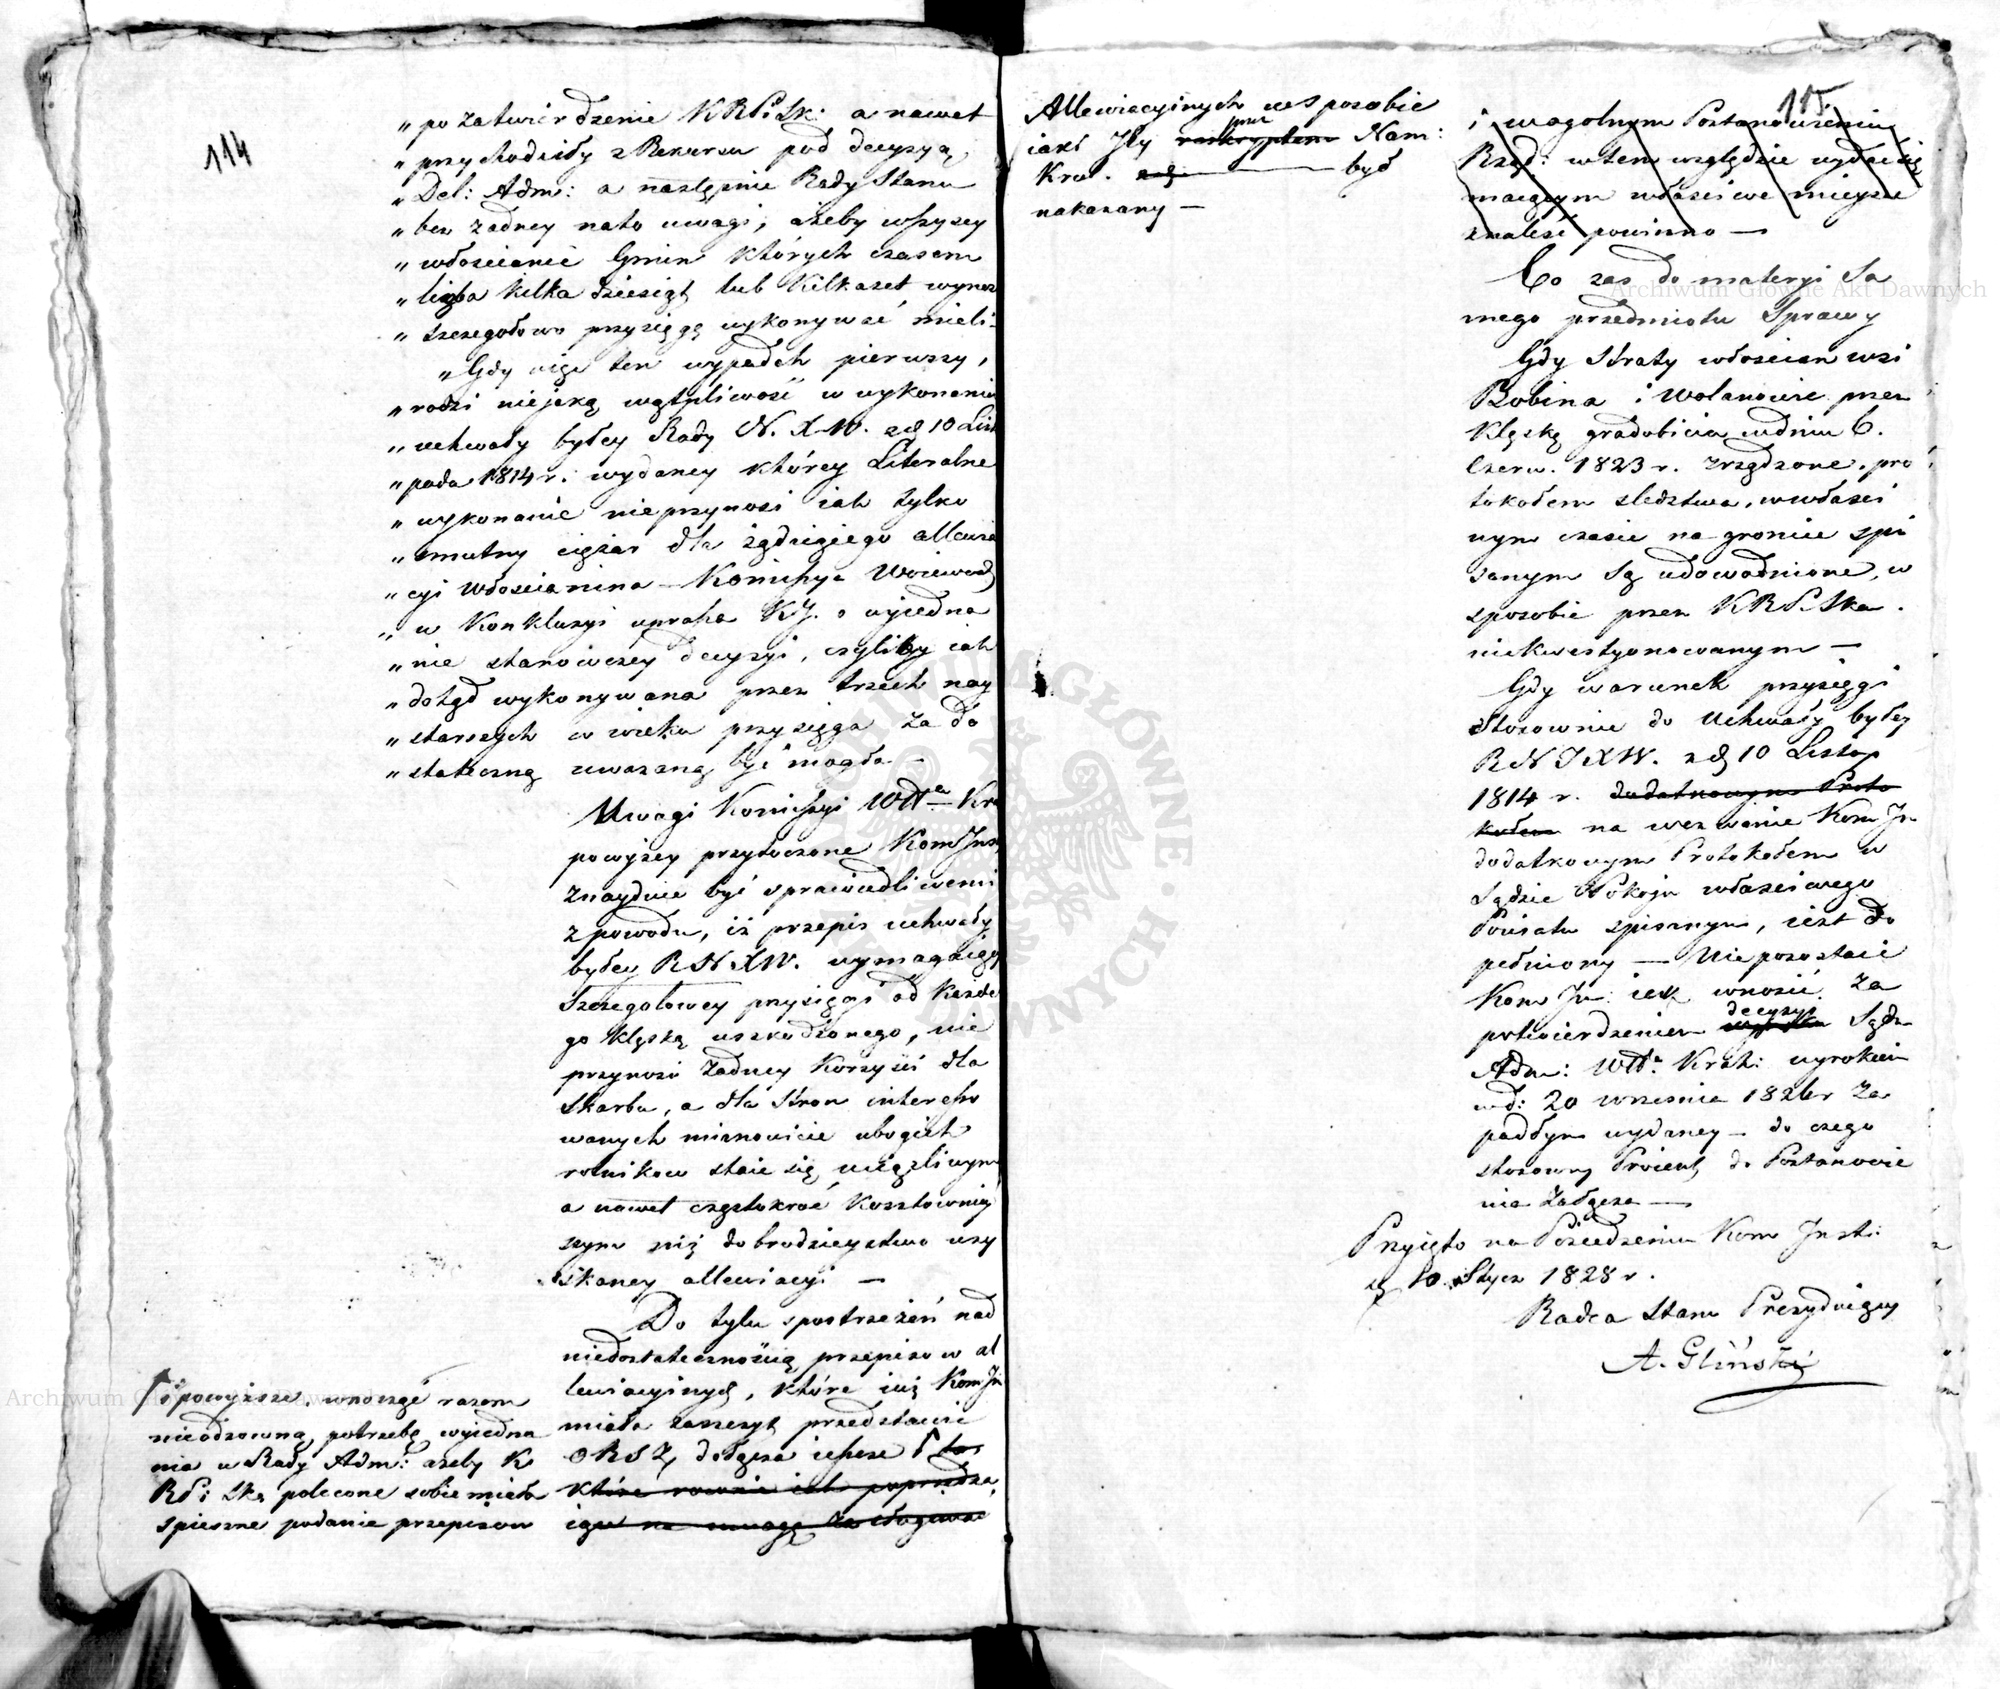 114
„ po zatwierdzenie KRPiSk: a nawet
„ przychodziły z Rekursu pod decyzyą
„ Del: Adm: a następnie Rady Stanu
„ bez żadney na to uwagi, ażeby wszyscy
„ włoscianie Gmin których czasem
„ liczba kilka dziesiąt lub kilkaset wynosi
„ szczegołowo przysięgę wykonywać mieli
„ Gdy więc ten wypadek pierwszy,
„ rodzi niejaką wątpliwość w wykonaniu
„ uchwały byłey Rady N. X. W. z d 10 List
„ pada 1814 r. wydaney którey Literalne
„ wykonanie nieprzynosi iak tylko
„ smutny ciężar dla żądaiącego allewia
„ cyi włoscianina — Kommissya Woiewodz
„ w Konkluzyi uprasza KJ. o wyiedna
„ nie stanowczey decyzyi, czyliby iak
„ dotąd wykonywana przez trzech nay
„ starszych w wieku przysięga za do
„ stateczną uważaną być mogła —
Uwagi Kommissyi Wdta Kra
powyżey przytoczone Kom Just
znayduie być sprawiedliwemi
z powodu, iż przepis uchwały
byłey RNXW. wymagaiący
szczegołowey przysięgi od każde
go klęską uszkodzonego, nie
przynosi żadney korzyści dla
Skarbu, a dla Stron interesso
wanych mianowicie ubogich
rolnikow staie się uciążliwym
a nawet częstokroć kosztowniey
szym niż dobrodzieystwo uzy
skaney allewiacyi —
Do tylu spostrzeżeń nad
niedostatecznością przepisow al
lewiacyinych, które iuż Kom Ju
miała zaszczyt przedstawić
ORSZ, dołącza ieszcze to
które rownie iak poprzedza
iące na uwagę zasługuiąc
i powyższe, wnosząc razem
nieodzowną potrzebę wyiedna
nia u Rady Adm: ażeby K
RPi Ska polecone sobie miała
spieszne podanie przepisow
Allewiacyinych w sposobie
iaki Jey przez reskryptem Nam:
Krol. z d. — był
nakazany —
115
i w ogolnym Postanowieniu
Rząd: w tem względzie wydać się
maiącym właściwe mieysce
znaleść powinno —
Co zas do materyi sa
mego przedmiotu Sprawy
Gdy straty włoscian wsi
Bobina i Wolanowic przez
klęskę gradobicia w dniu 6.
Czerw. 1823 r. zrządzone, pro
tokołem sledztwa, w właści
wym czasie na groncie spi
sanym są udowodnione, w
sposobie przez KRPiSka.
niekwestyonowanym —
Gdy warunek przysięgi
stosownie do Uchwały byłey
RNJXW. z d 10 Listop
1814 r. dodatkowym Proto
kołem na wezwanie Kom Ju
dodatkowym Protokołem w
Sądzie Pokoju właściwego
Powiatu spisanym, iest do
pełniony — Nie pozostaie
Kom Ju: iak wnosić za
potwierdzeniem decyzyi Sądu
Adm: Wdta Krak: wyrokiem
w d: 20 września 1826 r za
padłym wydaney — do czego
stosowny Proiekt do Postanowie
nia załącza —
Przyięto na Posiedzeniu Kom Just:
d 10 Stycz 1828 r.
Radca Stanu Prezyduiący
A. Gliński
Archiwum Główne Akt Dawnych
Archiwum Główne Akt Dawnych
ARCHIWUM GŁÓWNE AKT DAWNYCH